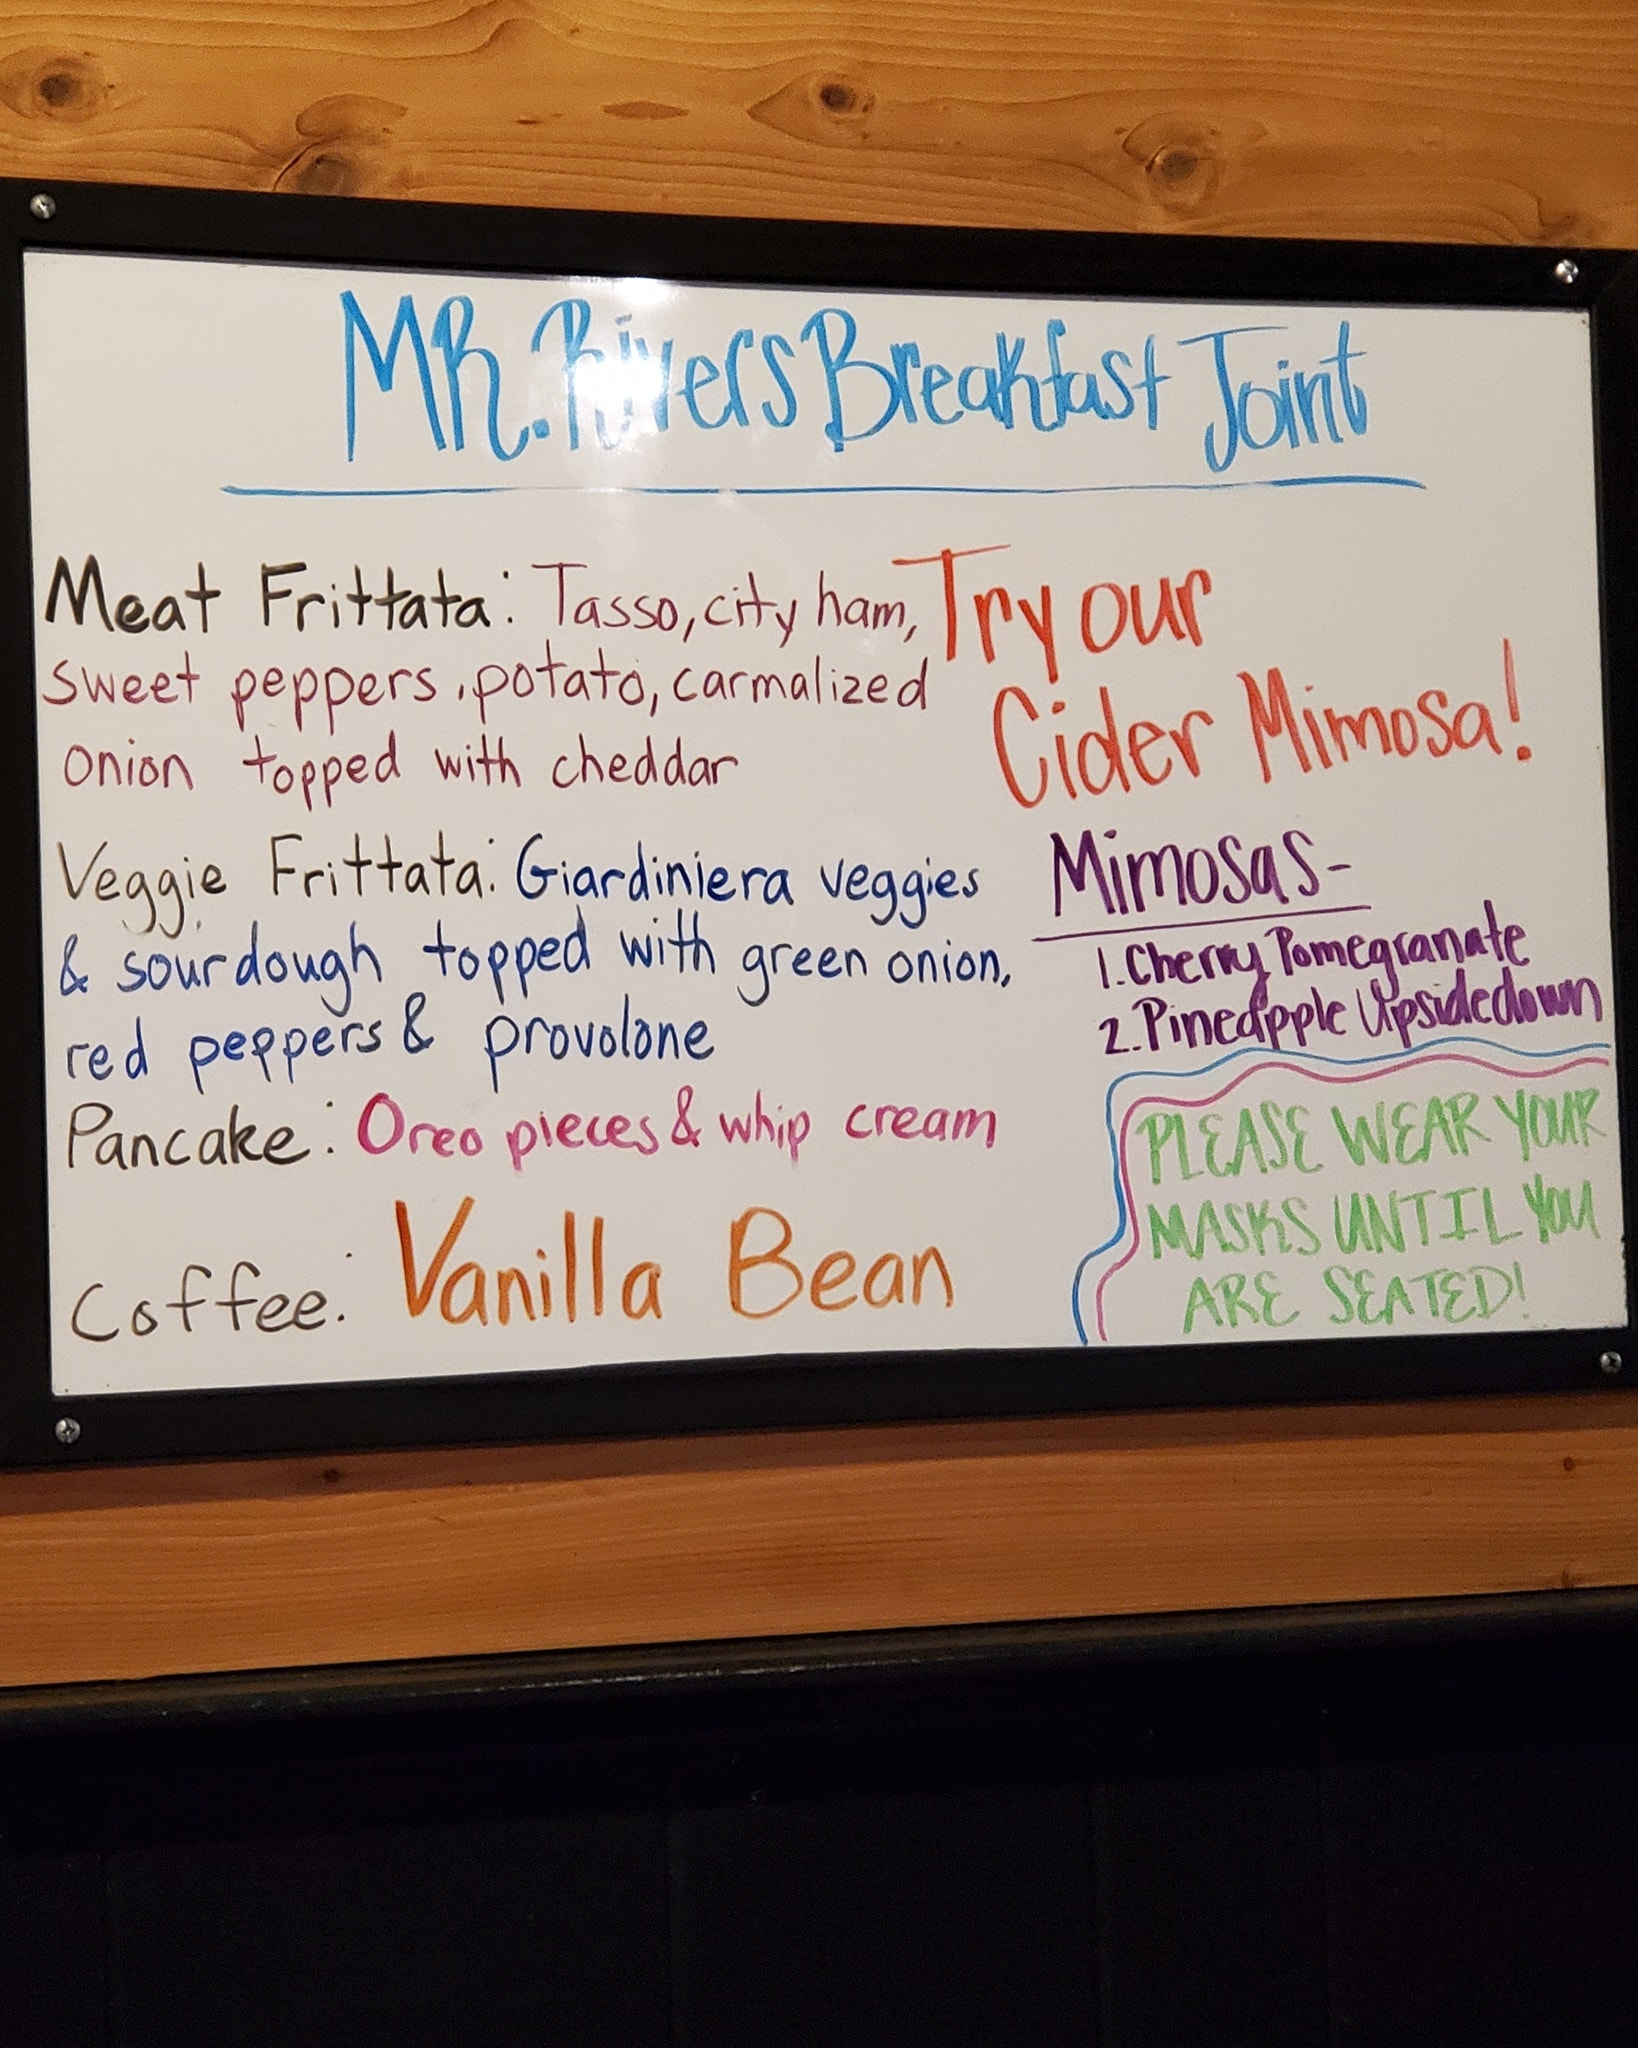 MR. Rivers Breakfast Joint
Meat Frittata: Tasso, city ham,
sweet peppers, potato, carmalized
onion topped with cheddar
Veggie Frittata: Giardiniera veggies
& sourdough topped with green onion,
red peppers & provolone
Pancake: Oreo pieces & whip cream
Coffee: Vanilla Bean
Try our
Cider Mimosa!
Mimosas-
1. Cherry Pomegranate
2. Pineapple Upsidedown
PLEASE WEAR YOUR
MASKS UNTIL YOU
ARE SEATED!